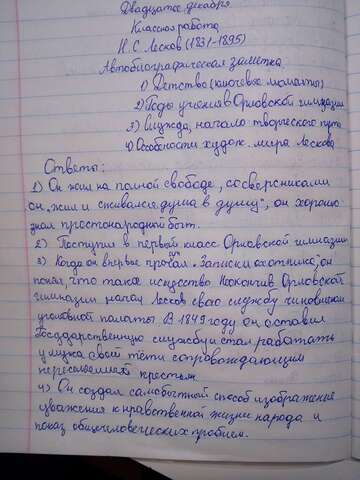 Двадцатое декабря
Классная работа
Н.С. Лесков (1831-1895)
Автобиографическая заметка
1) Детство (ключевые моменты)
2) Годы учения в Орловской гимназии
3) служба, начало творческого пути
4) Особенности худож. мира Лескова
Ответы:
1) Он жил на полной свободе, со сверсниками
он "жил и сживался душа в душу", он хорошо
знал простонародный быт.
2) Поступил в первый класс Орловской гимназии
3) Когда он впервые прочёл "Записки охотника", он
понял, что такое искусство Неокончив Орловской
гимназии начал Лесков свою службу чиновником
уголовной палаты. В 1849 году он оставил
Государственную службу и стал работать
у мужа своей тёти сопровождающим
переселенцев крестьян
4) Он создал самобытной способ изображения
уважения к нравственной жизни народа и
показ общечеловеческих проблем.